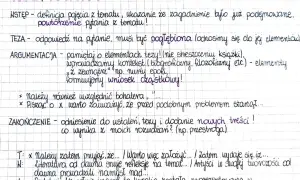 WSTĘP - definicja pojęcia z tematu, wskazanie że zagadnienie było już podejmowane,
powtórzenie pytania z tematu!
TEZA - odpowiedź na pytanie, musi być pogłębiona (odnosimy się do jej elementów)
ARGUMENTACJA - pamiętaj o elementach tezy! (nie streszczamy książki),
wprowadzamy kontekst (biograficzny, filozoficzny etc) - elementy
"z zewnątrz" np. nurtu epoki.
formułujemy wniosek cząstkowy!
* Należy również uwzględnić bohatera, "
* Pisząc o x warto zauważyć, że przed podobnym problemem stanął
ZAKOŃCZENIE - odniesienie do ustaleń, tezy i dodanie nowych treści!
co wynika z moich rozważań? (np. przestroga)
T * Należy zatem przyjąć, że... / Warto więc założyć... / Zatem wydaje się, iż...
* Literatura od dawna snuje refleksje na temat... / Artyści i twórcy
dawna prowadzili namysł nad...